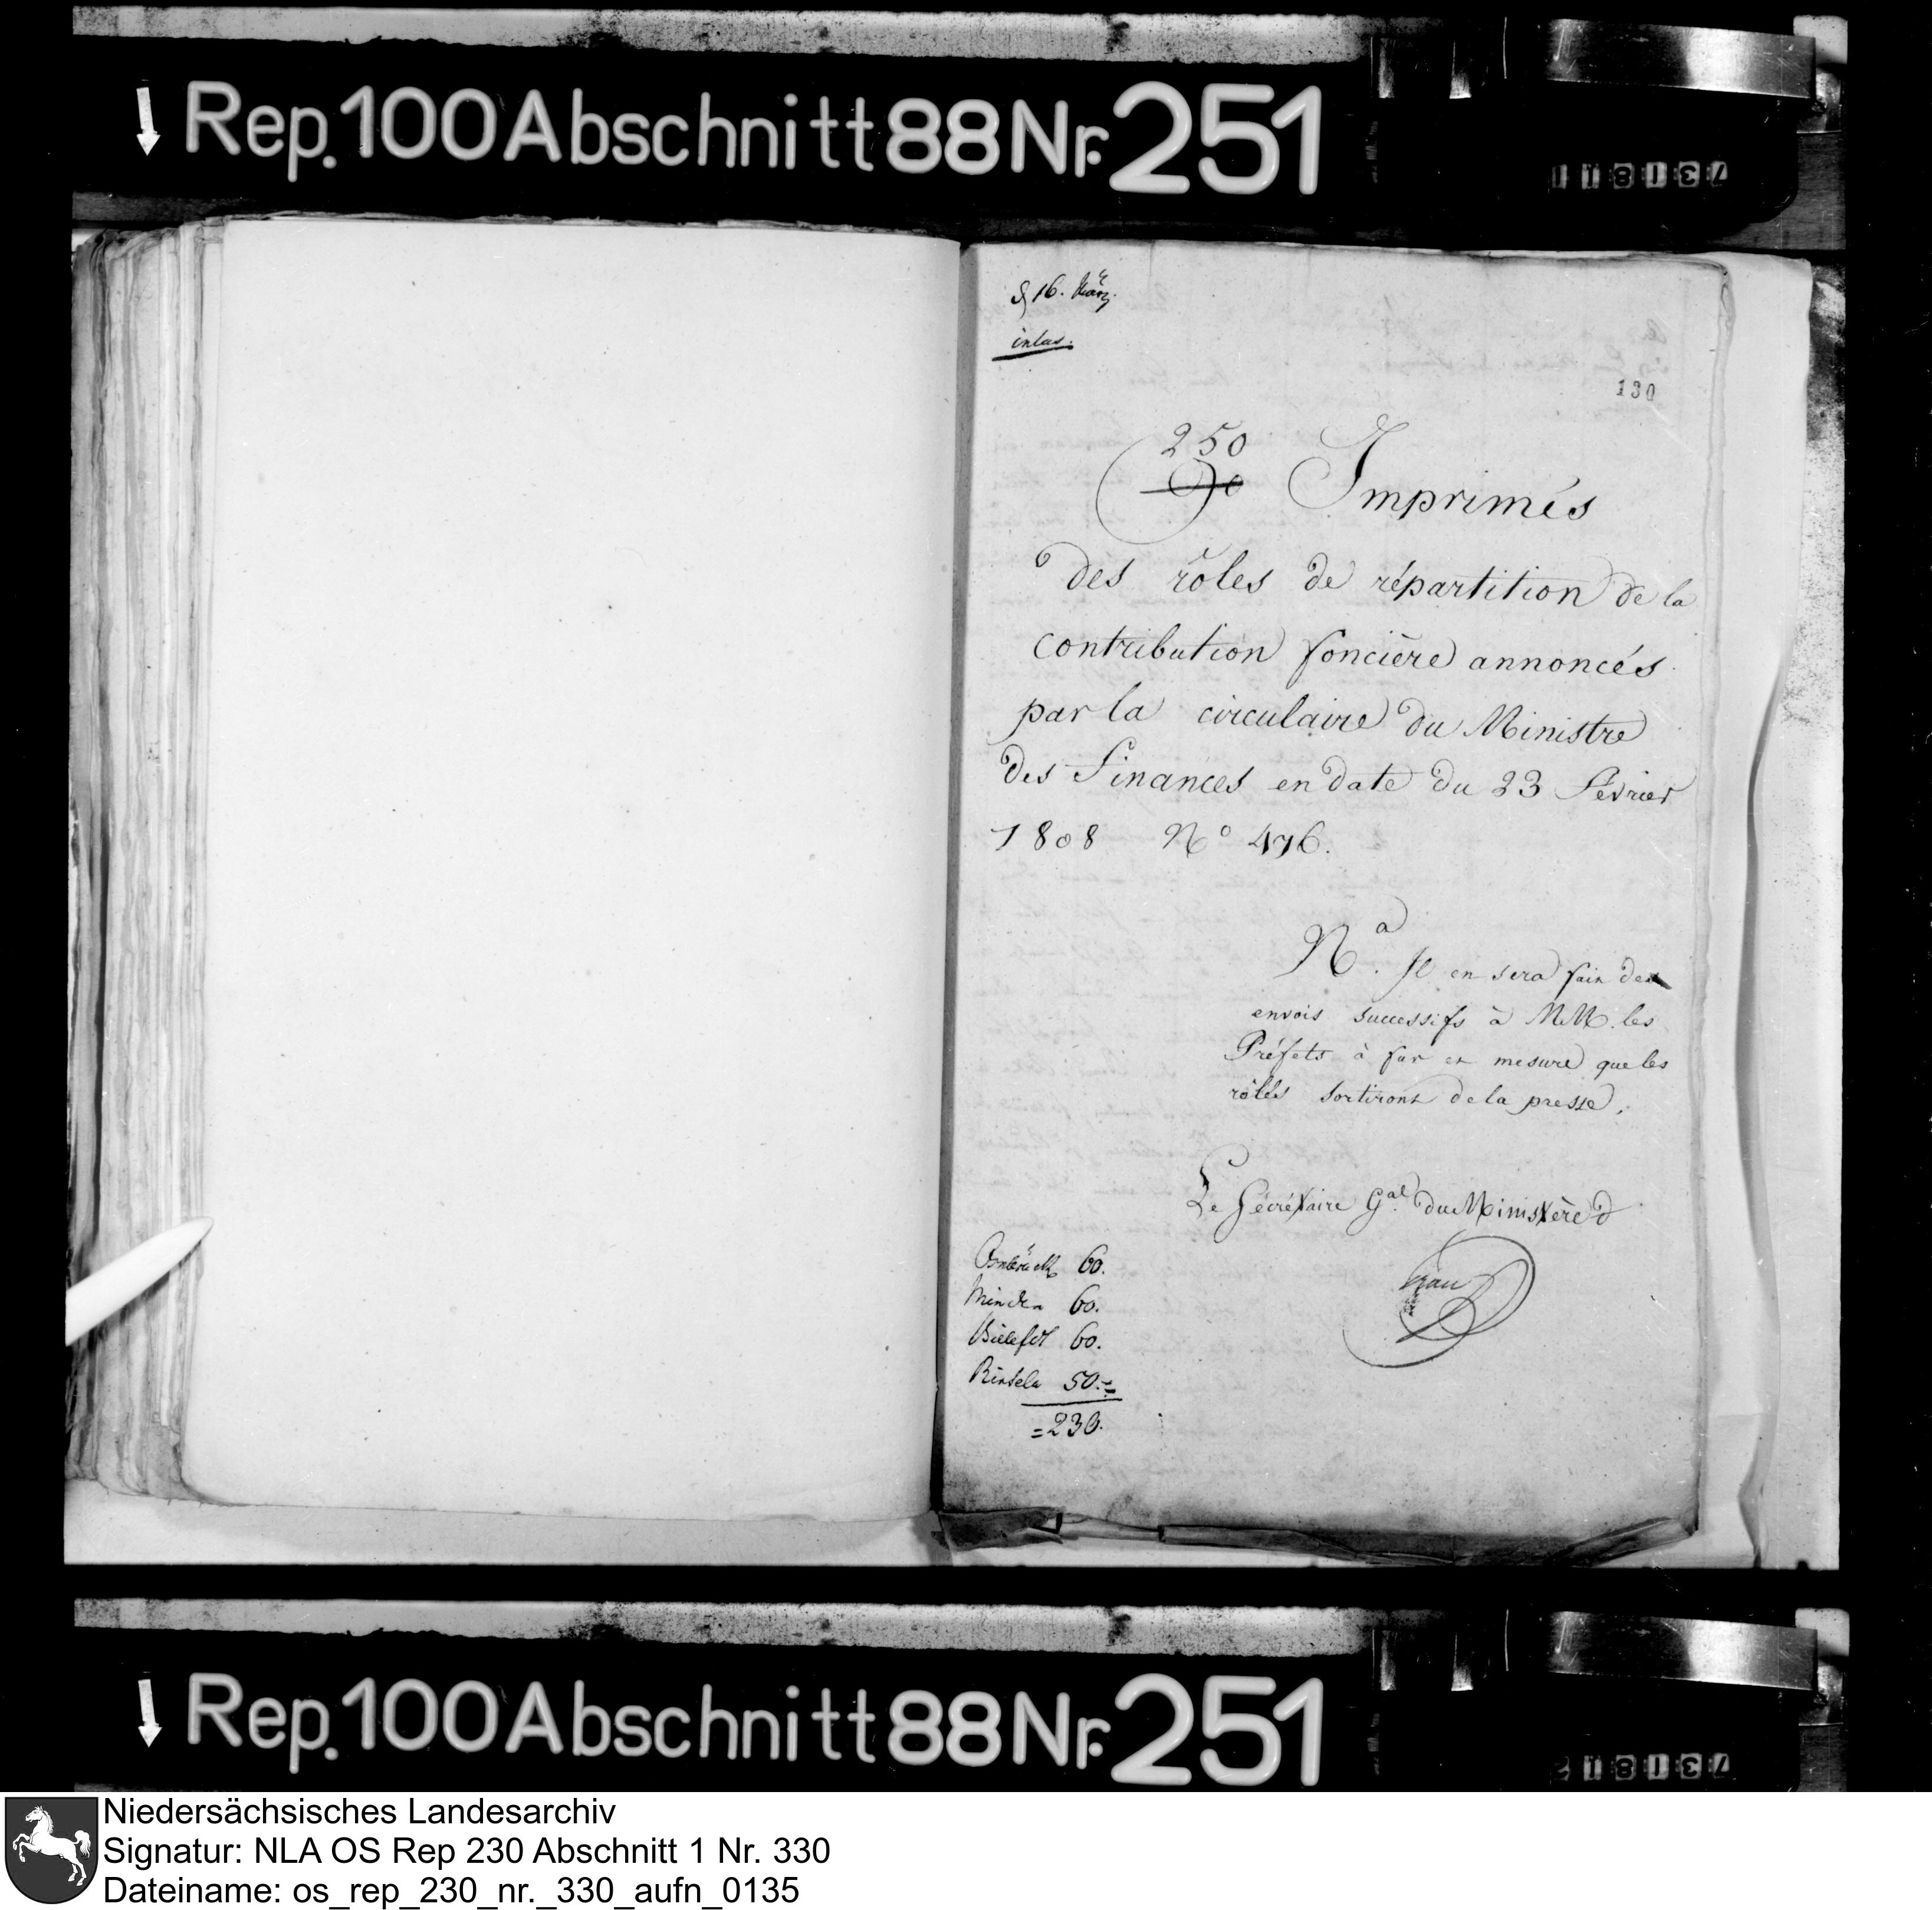 Rep.100 Abschnitt 88 Nr. 251
16. März
130
250
Imprimés
des rôles de répartition de la
contribution foncière annoncés
par la circulaire du Ministre
des Finances en date du 23 Février
1808 No 476.
Na. Il en sera fait des
envois successifs à MM. les
Préfets à fur et mesure que les
rôles sortiront de la presse.
Le Sécrétaire Gal. du Ministère
Osnbrück 60.
Minden 60.
Bielefel 60.
Rinteln 50.=
=230.
Rep.100 Abschnitt 88 Nr. 251
Niedersächsisches Landesarchiv
Signatur: NLA OS Rep 230 Abschnitt 1 Nr. 330
Dateiname: os_rep_230_nr._330_aufn_0135